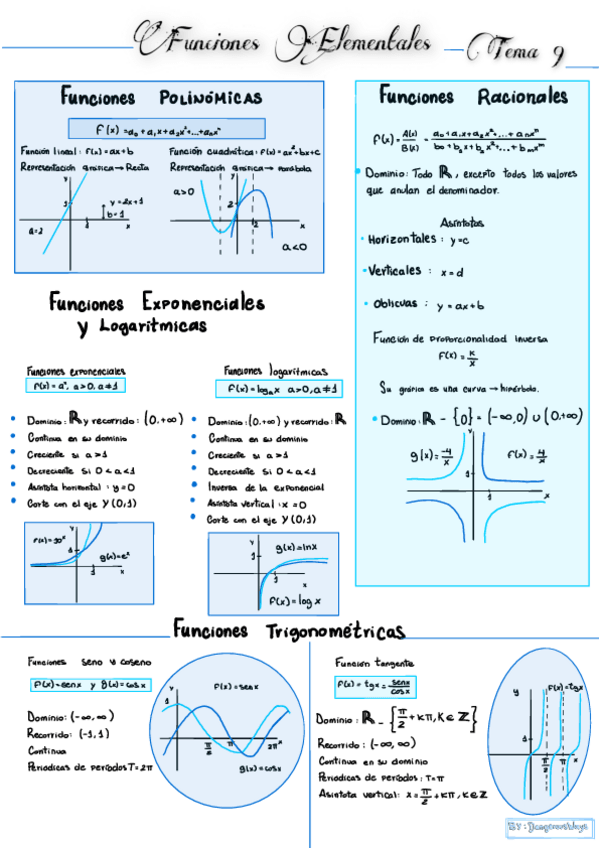 Funciones Elementales Tema 9
Funciones Polinómicas
f(x) = a₀ + a₁x + a₂x² + ... + aₙxⁿ
Función lineal: f(x) = ax+b
Representación gráfica → Recta
y
y = 2x+1
b=1
1
1
x
a=2
Función cuadrática: f(x) = ax²+bx+c
Representación gráfica → parábola
y
a>0
2
2
x
a<0
Funciones Racionales
f(x) = A(x)/B(x) = a₀+a₁x+a₂x²+...+aₙxⁿ / b₀+b₁x+b₂x²+...+bₘxᵐ
• Dominio: Todo ℝ, excepto todos los valores
que anulan el denominador.
Asíntotas
• Horizontales: y=c
• Verticales: x=d
• Oblicuas: y=ax+b
Función de proporcionalidad inversa
f(x) = K/x
Su gráfica es una curva → hipérbola.
• Dominio: ℝ - {0} = (-∞,0) ∪ (0,+∞)
y
g(x) = -4/x
f(x) = 4/x
1
1
x
Funciones Exponenciales
y Logarítmicas
Funciones exponenciales
f(x) = aˣ, a>0, a≠1
• Dominio: ℝ y recorrido: (0,+∞)
• Continua en su dominio
• Creciente si a>1
• Decreciente si 0<a<1
• Asíntota horizontal: y=0
• Corte con el eje Y (0,1)
y
f(x)=10ˣ
g(x)=eˣ
1
1
x
Funciones logarítmicas
f(x) = logₐx a>0, a≠1
• Dominio: (0,+∞) y recorrido: ℝ
• Continua en su dominio
• Creciente si a>1
• Decreciente si 0<a<1
• Inversa de la exponencial
• Asíntota vertical: x=0
• Corte con el eje Y (0,1)
y
g(x)=lnx
1
1
x
f(x)=log x
Funciones Trigonométricas
Funciones seno y coseno
f(x)=senx y g(x)=cosx
Dominio: (-∞,∞)
Recorrido: (-1,1)
Continua
Periódicas de períodos T=2π
y
f(x)=senx
1
π/2
π
2π
x
g(x)=cosx
Función tangente
f(x) = tgx = senx/cosx
Dominio: ℝ - {π/2 + Kπ, K∈ℤ}
Recorrido: (-∞,∞)
Continua en su dominio
Periódicas de períodos: T=π
Asíntota vertical: x=π/2+Kπ, K∈ℤ
y
f(x)=tgx
1
π/2
π
x
BY: